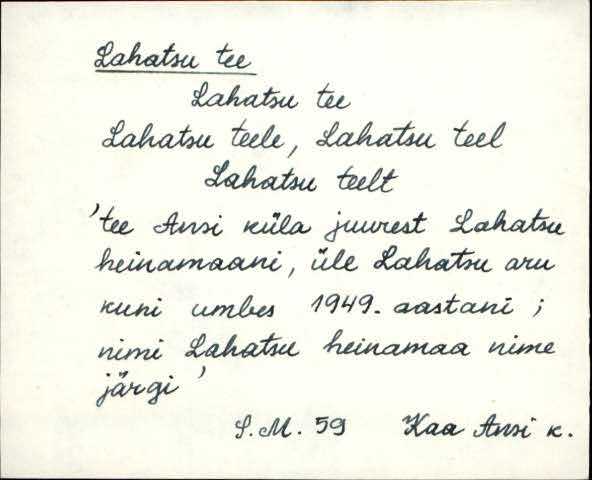 Lahatsu tee
Lahatsu tee
Lahatsu teele, Lahatsu teel
Lahatsu teelt
'tee Ansi küla juurest Lahatsu
heinamaani, üle Lahatsu aru
kuni umbes 1949. aastani ;
nimi Lahatsu heinamaa nime
järgi'
S.M. 59 Kaa Ansi k.